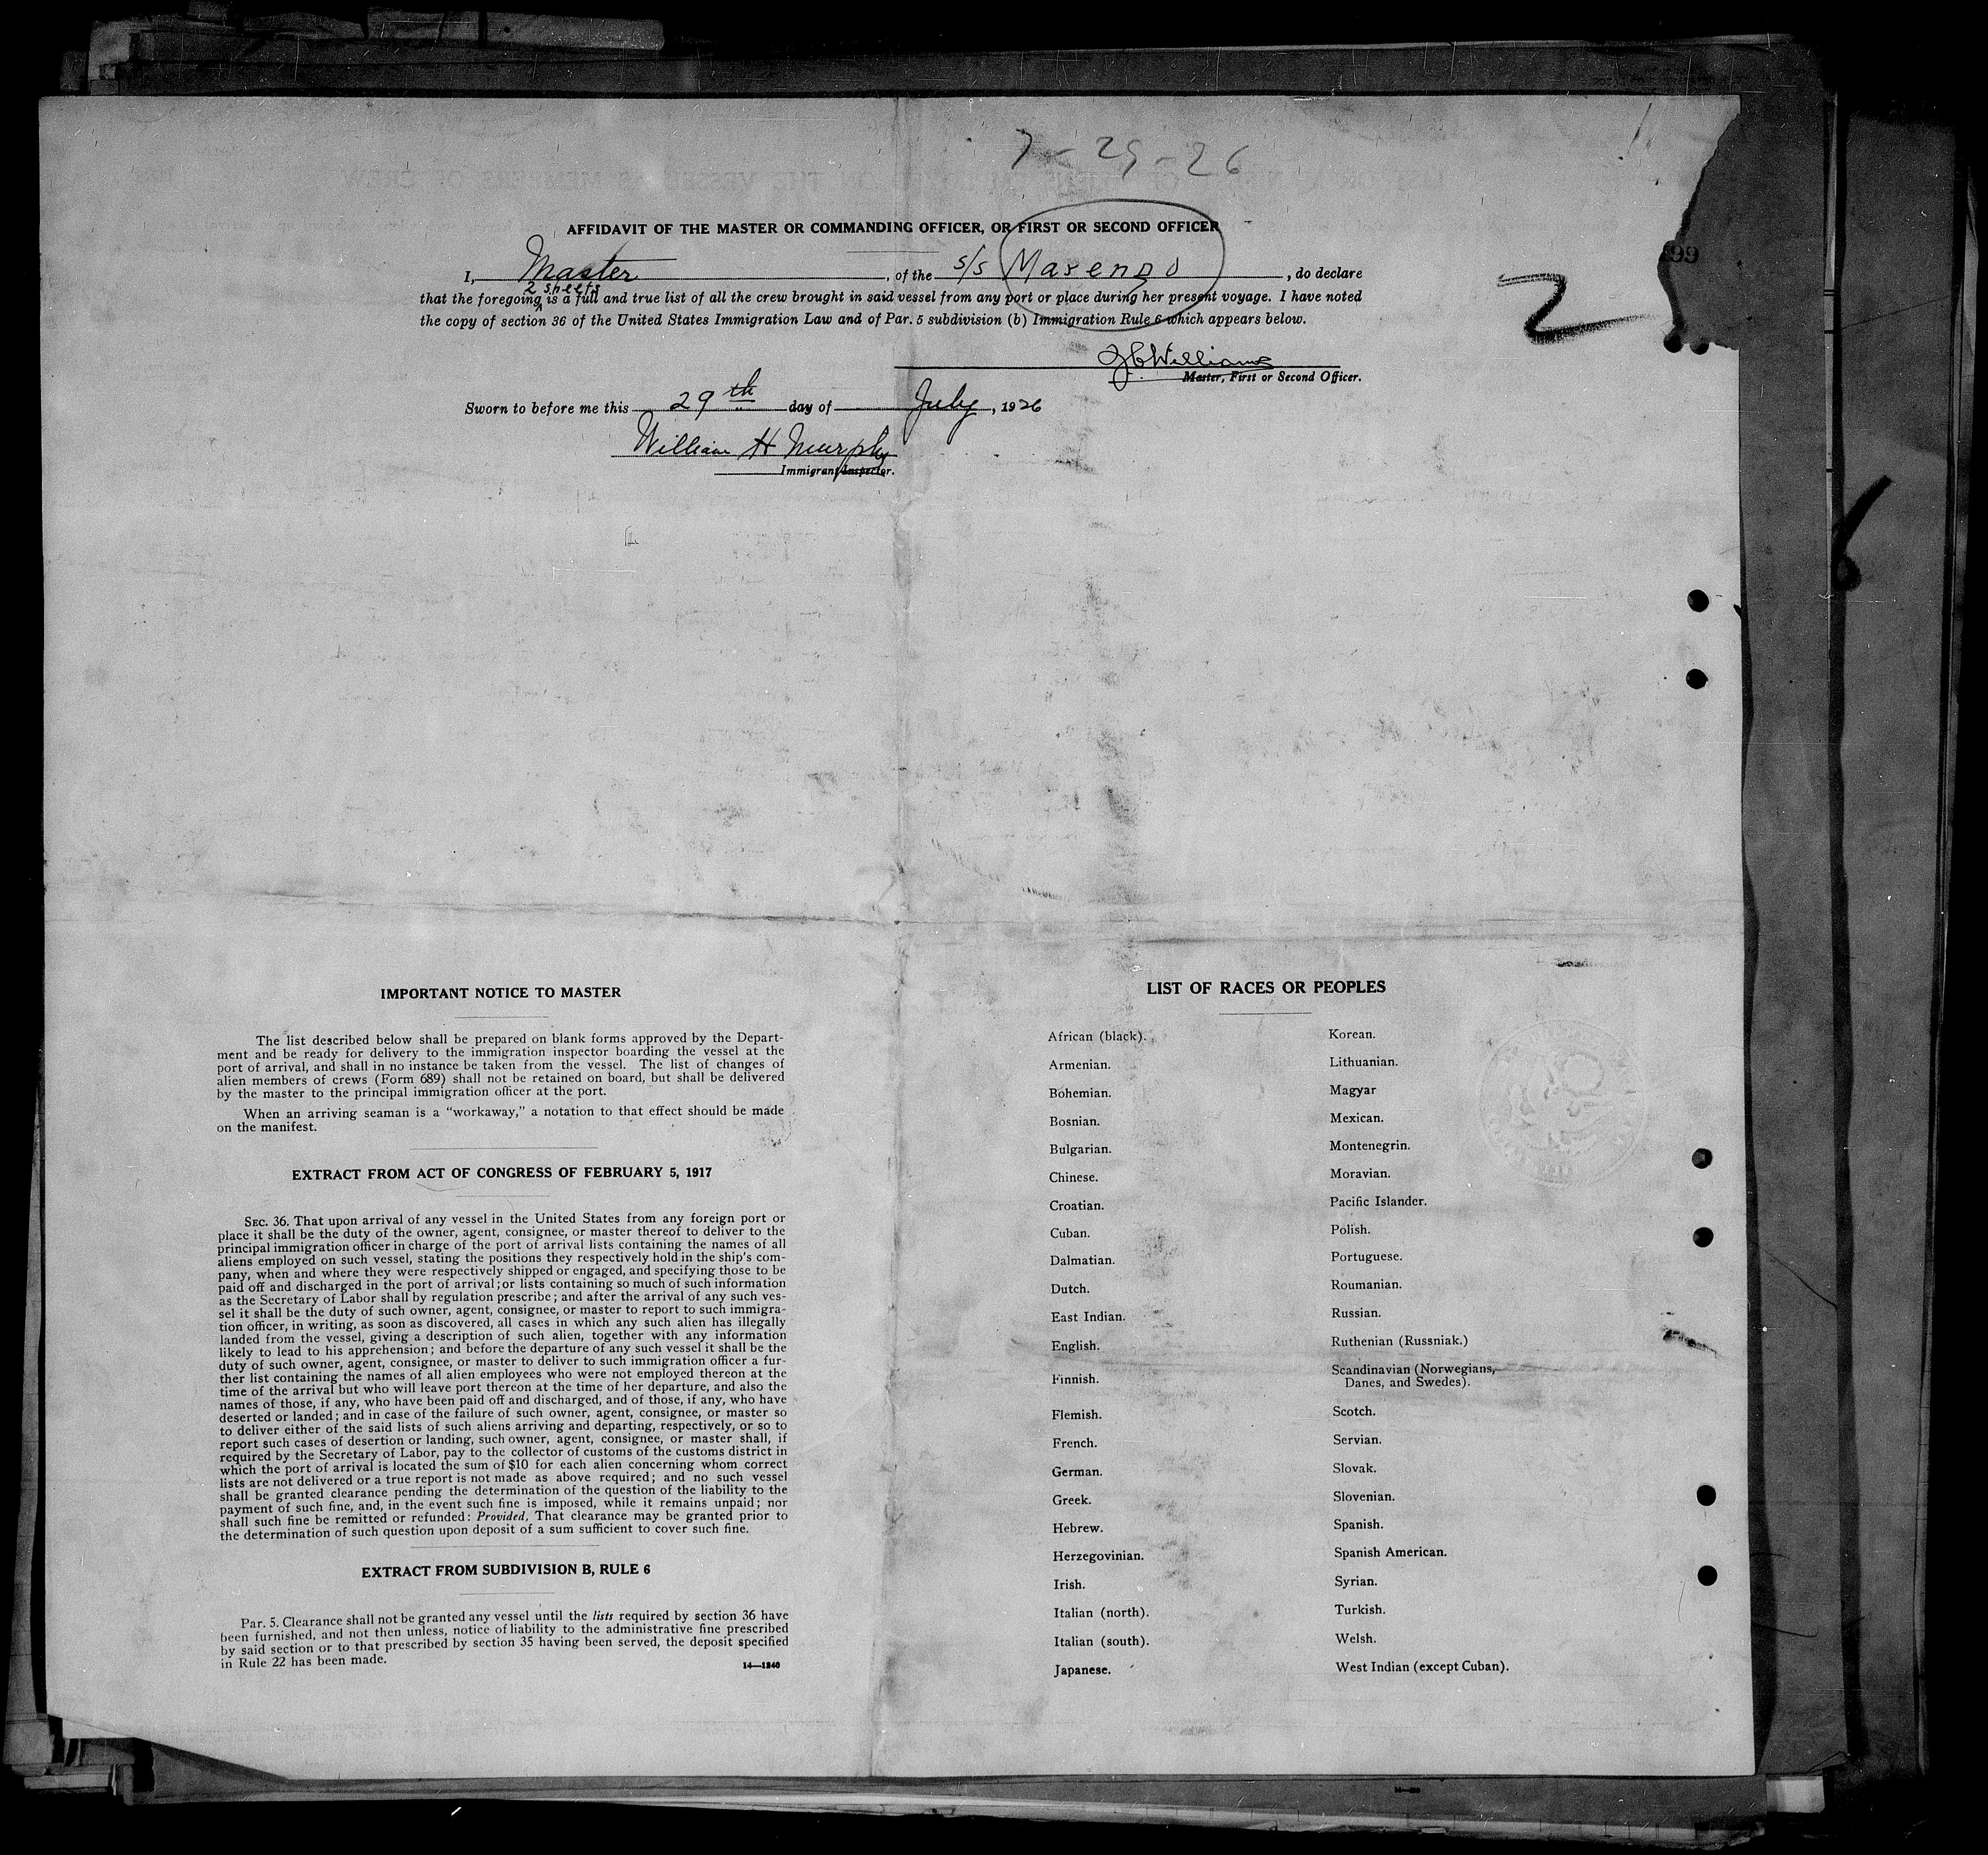 7-29-26
AFFIDAVIT OF THE MASTER OR COMMANDING OFFICER, OR FIRST OR SECOND OFFICER
I, Master, of the s/s , do declare
2 sheets
that the foregoing is a full and true list of all the crew brought in said vessel from any port or place during her present voyage. I have noted
the copy of section 36 of the United States Immigration Law and of Par. 5 subdivision (b) Immigration Rule 6 which appears below.
2
99
Williams
Master, First or Second Officer.
Sworn to before me this 29th day of July, 1926
William H Murphy
Immigrant Inspector.
IMPORTANT NOTICE TO MASTER
The list described below shall be prepared on blank forms approved by the Depart-
ment and be ready for delivery to the immigration inspector boarding the vessel at the
port of arrival, and shall in no instance be taken from the vessel. The list of changes of
alien members of crews (Form 689) shall not be retained on board, but shall be delivered
by the master to the principal immigration officer at the port.
When an arriving seaman is a "workaway," a notation to that effect should be made
on the manifest.
EXTRACT FROM ACT OF CONGRESS OF FEBRUARY 5, 1917
SEC. 36. That upon arrival of any vessel in the United States from any foreign port or
place it shall be the duty of the owner, agent, consignee, or master thereof to deliver to the
principal immigration officer in charge of the port of arrival lists containing the names of all
aliens employed on such vessel, stating the positions they respectively hold in the ship's com-
pany, when and where they were respectively shipped or engaged, and specifying those to be
paid off and discharged in the port of arrival; or lists containing so much of such information
as the Secretary of Labor shall by regulation prescribe; and after the arrival of any such ves-
sel it shall be the duty of such owner, agent, consignee, or master to report to such immigra-
tion officer, in writing, as soon as discovered, all cases in which any such alien has illegally
landed from the vessel, giving a description of such alien, together with any information
likely to lead to his apprehension; and before the departure of any such vessel it shall be the
duty of such owner, agent, consignee, or master to deliver to such immigration officer a fur-
ther list containing the names of all alien employees who were not employed thereon at the
time of the arrival but who will leave port thereon at the time of her departure, and also the
names of those, if any, who have been paid off and discharged, and of those, if any, who have
deserted or landed; and in case of the failure of such owner, agent, consignee, or master so
to deliver either of the said lists of such aliens arriving and departing, respectively, or so to
report such cases of desertion or landing, such owner, agent, consignee, or master shall, if
required by the Secretary of Labor, pay to the collector of customs of the customs district in
which the port of arrival is located the sum of $10 for each alien concerning whom correct
lists are not delivered or a true report is not made as above required; and no such vessel
shall be granted clearance pending the determination of the question of the liability to the
payment of such fine, and, in the event such fine is imposed, while it remains unpaid; nor
shall such fine be remitted or refunded: Provided, That clearance may be granted prior to
the determination of such question upon deposit of a sum sufficient to cover such fine.
EXTRACT FROM SUBDIVISION B, RULE 6
Par. 5. Clearance shall not be granted any vessel until the lists required by section 36 have
been furnished, and not then unless, notice of liability to the administrative fine prescribed
by said section or to that prescribed by section 35 having been served, the deposit specified
in Rule 22 has been made.
14—1240
LIST OF RACES OR PEOPLES
African (black).
Armenian.
Bohemian.
Bosnian.
Bulgarian.
Chinese.
Croatian.
Cuban.
Dalmatian.
Dutch.
East Indian.
English.
Finnish.
Flemish.
French.
German.
Greek.
Hebrew.
Herzegovinian.
Irish.
Italian (north).
Italian (south).
Japanese.
Korean.
Lithuanian.
Magyar
Mexican.
Montenegrin.
Moravian.
Pacific Islander.
Polish.
Portuguese.
Roumanian.
Russian.
Ruthenian (Russniak.)
Scandinavian (Norwegians,
Danes, and Swedes).
Scotch.
Servian.
Slovak.
Slovenian.
Spanish.
Spanish American.
Syrian.
Turkish.
Welsh.
West Indian (except Cuban).